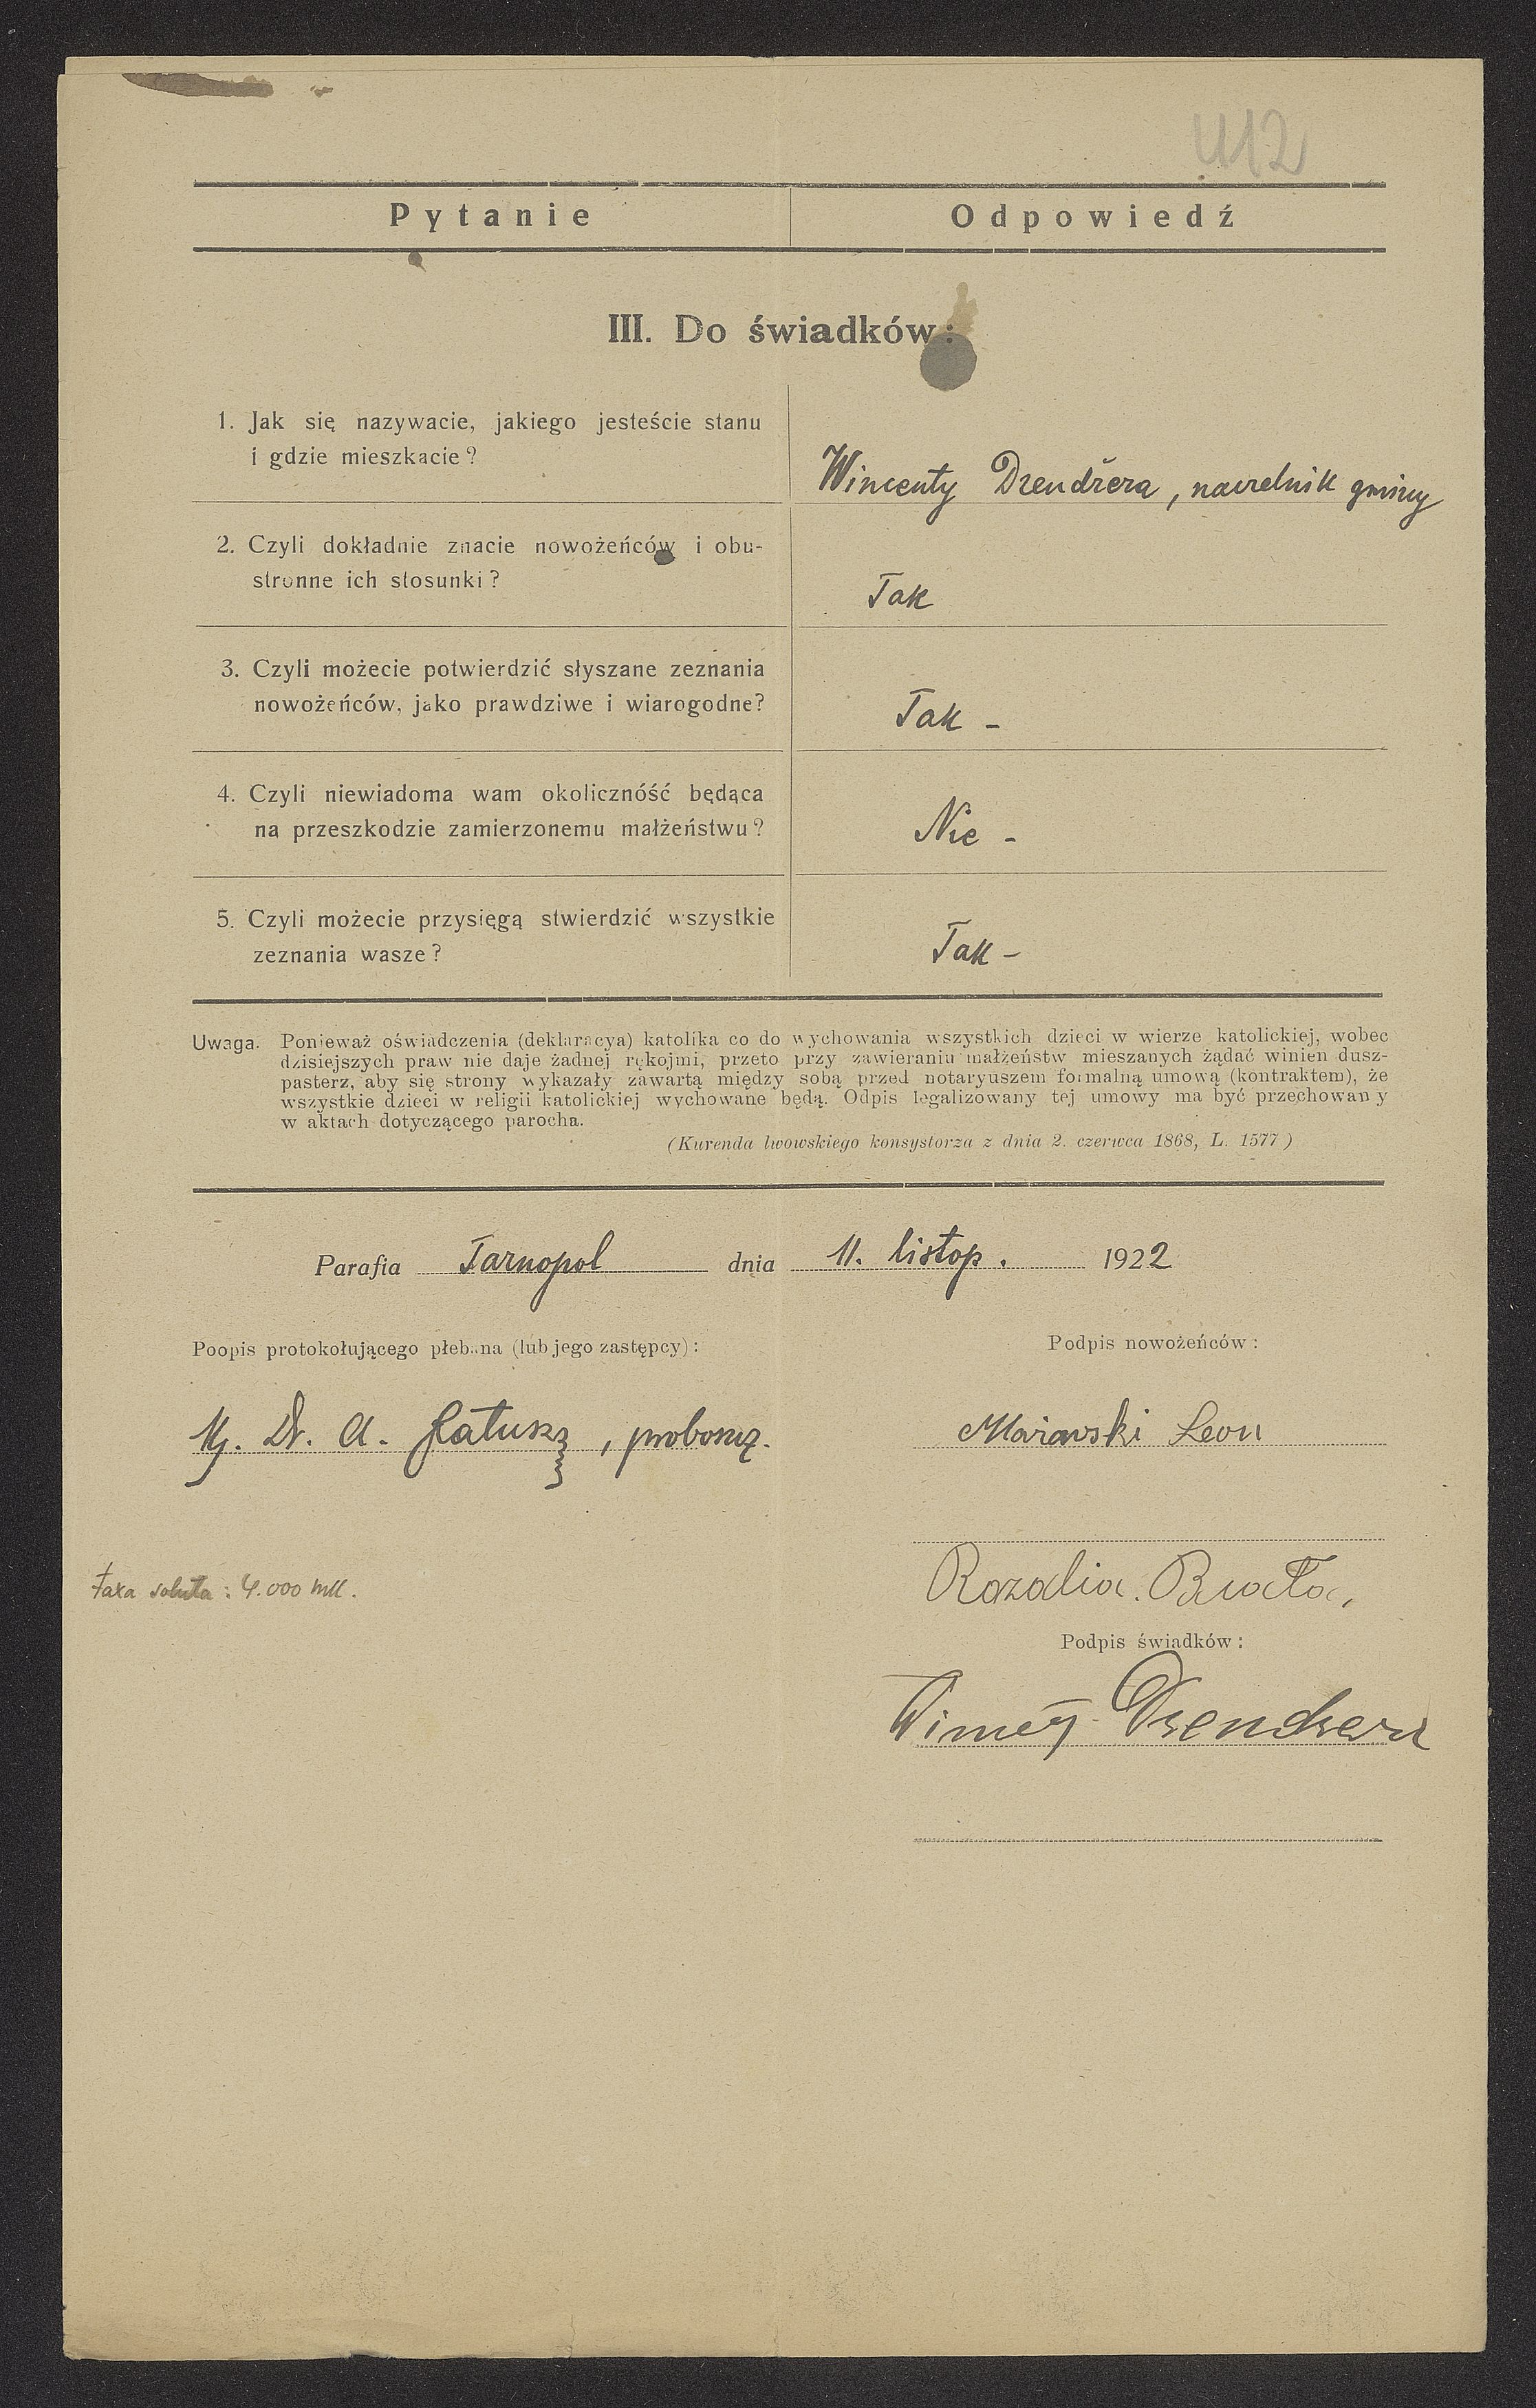 412
Pytanie
Odpowiedź
III. Do świadków:
1. Jak się nazywacie, jakiego jesteście stanu
i gdzie mieszkacie?
Wincenty Dzendzera, naczelnik gminy
2. Czyli dokładnie znacie nowożeńców i obu-
stronne ich stosunki?
Tak
3. Czyli możecie potwierdzić słyszane zeznania
nowożeńców, jako prawdziwe i wiarogodne?
Tak -
4. Czyli niewiadoma wam okolicznóść będąca
na przeszkodzie zamierzonemu małżeństwu?
Nie -
5. Czyli możecie przysięgą stwierdzić wszystkie
zeznania wasze?
Tak -
Uwaga. Ponieważ oświadczenia (deklaracya) katolika co do wychowania wszystkich dzieci w wierze katolickiej, wobec
dzisiejszych praw nie daje żadnej rękojmi, przeto przy zawieraniu małżeństw mieszanych żądać winien dusz-
pasterz, aby się strony wykazały zawartą między sobą przed notaryuszem formalną umową (kontraktem), że
wszystkie dzieci w religii katolickiej wychowane będą. Odpis legalizowany tej umowy ma być przechowany
w aktach dotyczącego parocha.
(Kurenda lwowskiego konsystorza z dnia 2. czerwca 1868, L. 1577)
Parafia Tarnopol dnia 11. listop. 1922
Poopis protokołującego plebana (lub jego zastępcy):
Podpis nowożeńców:
Dr. A. , proboszcz.
Leon
Rozalia Biała,
taxa soluta: 4.000 mk.
Podpis świadków:
Dzendzera